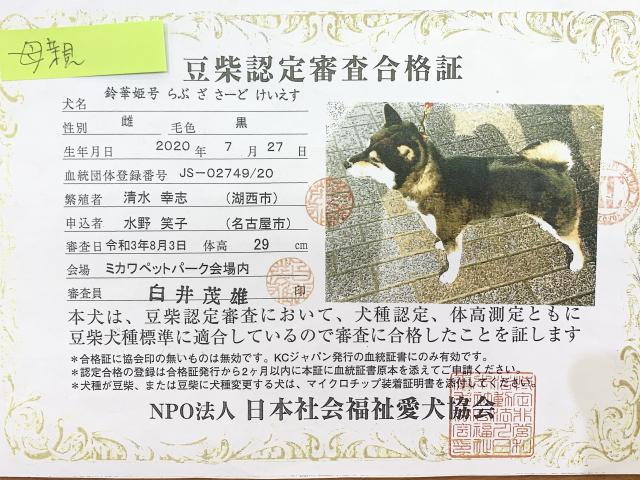 母親
豆柴認定審査合格証
鈴華姫号 らぶ ざ さーど けいえす
犬名
性別 雌 毛色 黒
生年月日 2020 年 7 月 27 日
血統団体登録番号 JS-02749/20
繁殖者 清水 幸志 (湖西市)
申込者 水野 笑子 (名古屋市)
審査日 令和3年8月3日 体高 29 cm
会場 ミカワペットパーク会場内
審査員 白井茂雄 印
本犬は、豆柴認定審査において、犬種認定、体高測定ともに
豆柴犬種標準に適合しているので審査に合格したことを証します
*合格証に協会印の無いものは無効です。KCジャパン発行の血統証書にのみ有効です。
*認定合格の登録は合格証発行から2ヶ月以内に本証に血統証書原本を添えてご申請ください。
*犬種が豆柴、または豆柴に犬種変更する犬は、マイクロチップ装着証明書を添付してください。
NPO法人 日本社会福祉愛犬協会